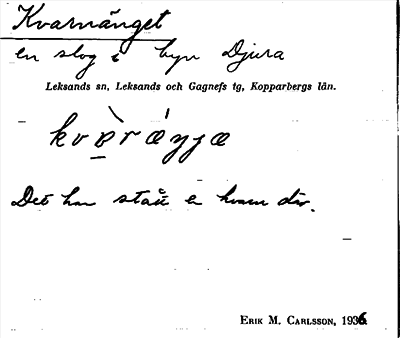 Kvarnänget
en slog i byn Djura
Leksands sn, Leksands och Gagnefs tg, Kopparbergs län.
Det har stått en kvarn där.
ERIK M. CARLSSON, 1936.